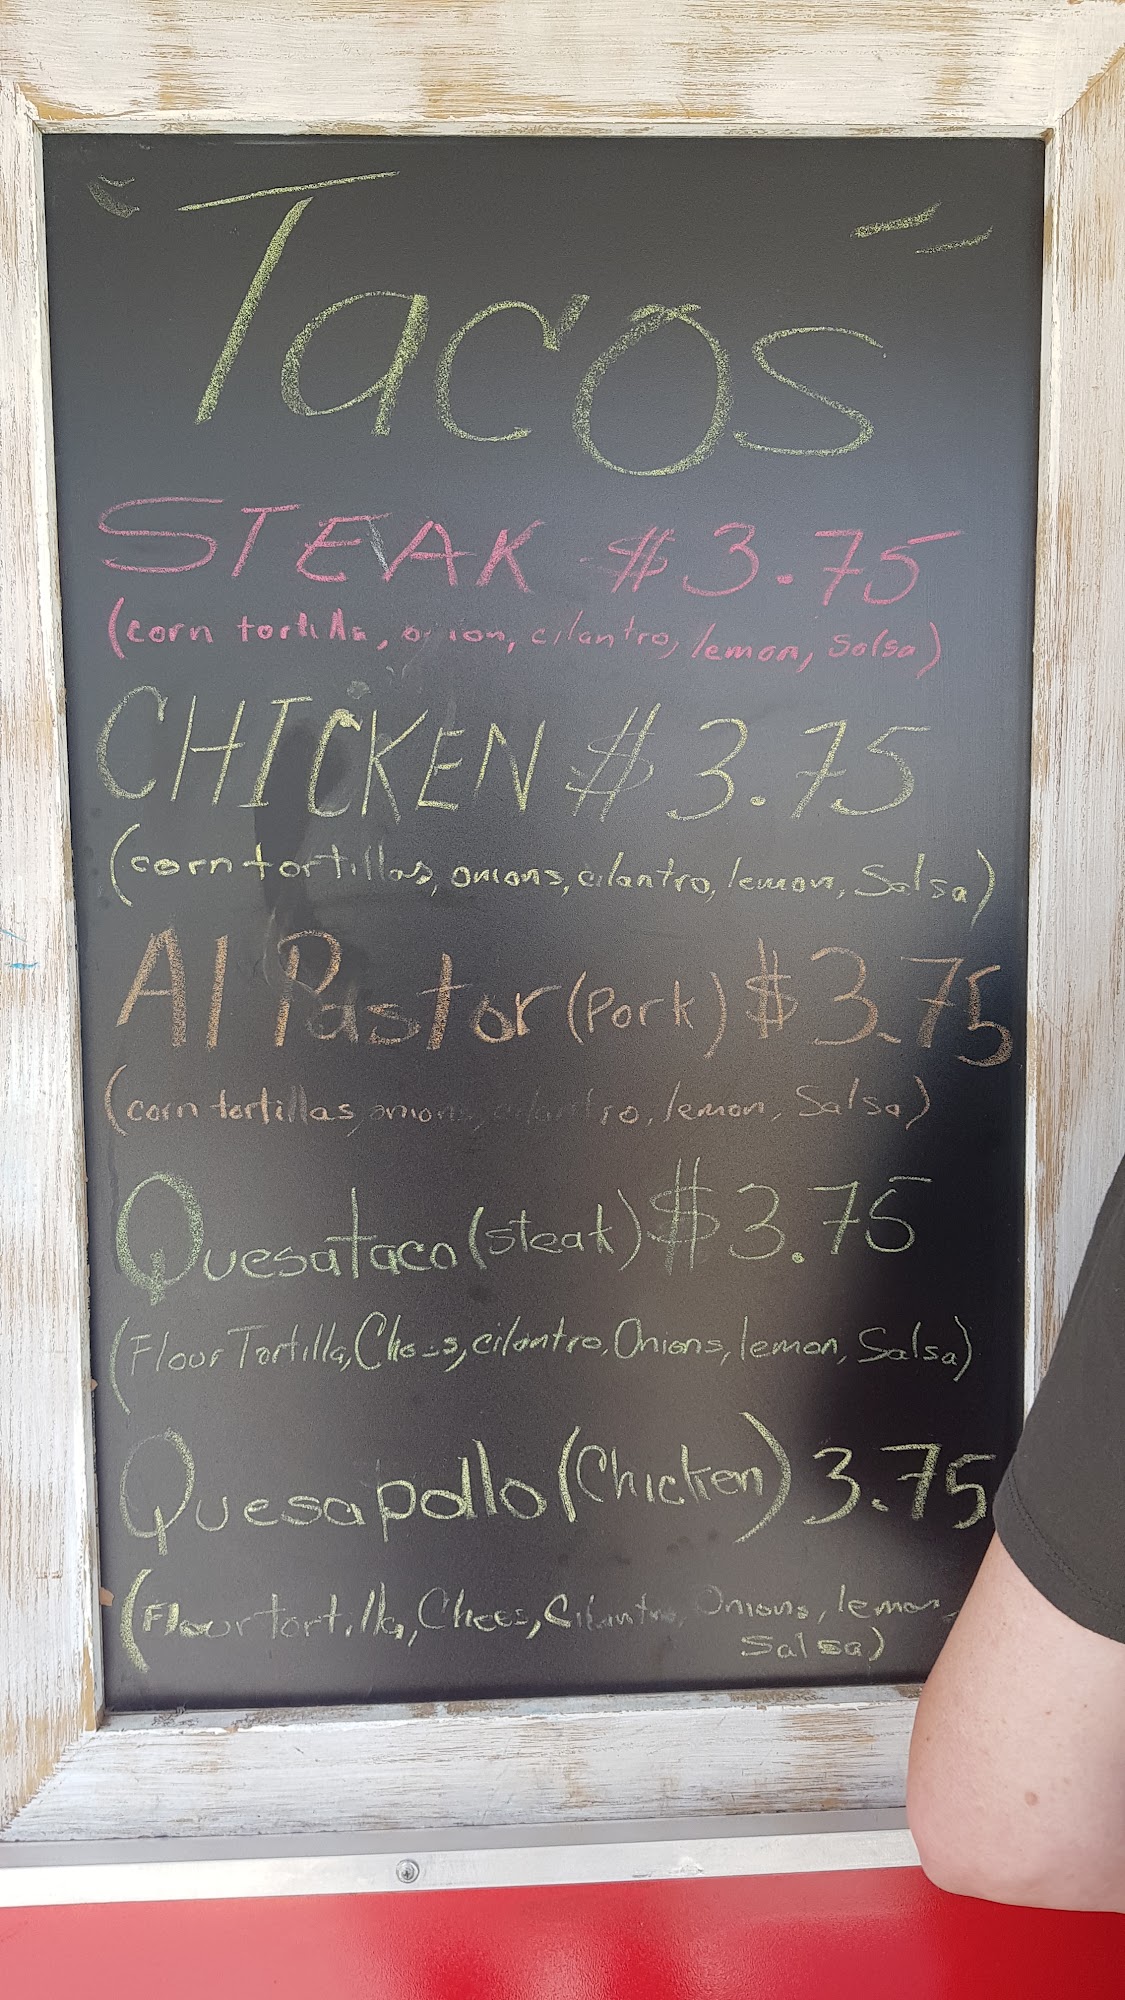 "Tacos"
STEAK $3.75
(corn tortilla, onion, cilantro, lemon, Salsa)
CHICKEN $3.75
(corn tortillas, onions, cilantro, lemon, Salsa)
Al Pastor (Pork) $3.75
(corn tortillas, onions, cilantro, lemon, Salsa)
Quesataco (steak) $3.75
(Flour Tortilla, cilantro, Onions, lemon, Salsa)
Quesapollo (Chicken) 3.75
(Flour tortilla, Chees, Cilantro, Onions, lemon,
Salsa)